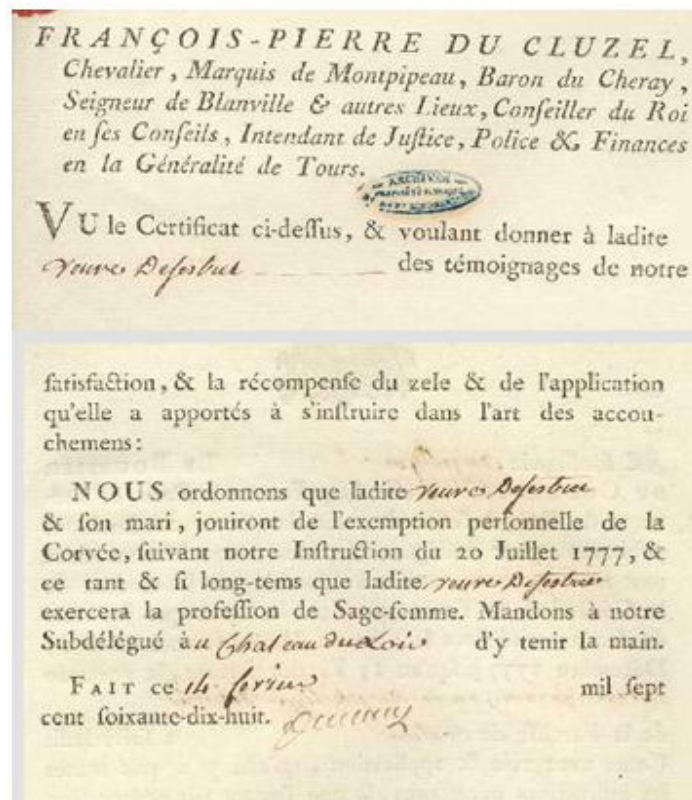 FRANÇOIS-PIERRE DU CLUZEL,
Chevalier, Marquis de Montpipeau, Baron du Cheray,
Seigneur de Blanville & autres Lieux, Conſeiller du Roi
en ſes Conſeils, Intendant de Juſtice, Police & Finances
en la Généralité de Tours.
ARCHIVES
VU le Certificat ci-deſſus, & voulant donner à ladite
veuve des témoignages de notre
ſatisfaction, & la récompenſe du zele & de l'application
qu'elle a apportés à s'inſtruire dans l'art des accou-
chemens:
NOUS ordonnons que ladite veuve
& ſon mari, jouiront de l'exemption perſonnelle de la
Corvée, ſuivant notre Inſtruction du 20 Juillet 1777, &
ce tant & ſi long-tems que ladite veuve
exercera la profeſſion de Sage-femme. Mandons à notre
Subdélégué àu Chateau du Loir d'y tenir la main.
FAIT ce 14 fevrier mil ſept
cent ſoixante-dix-huit.